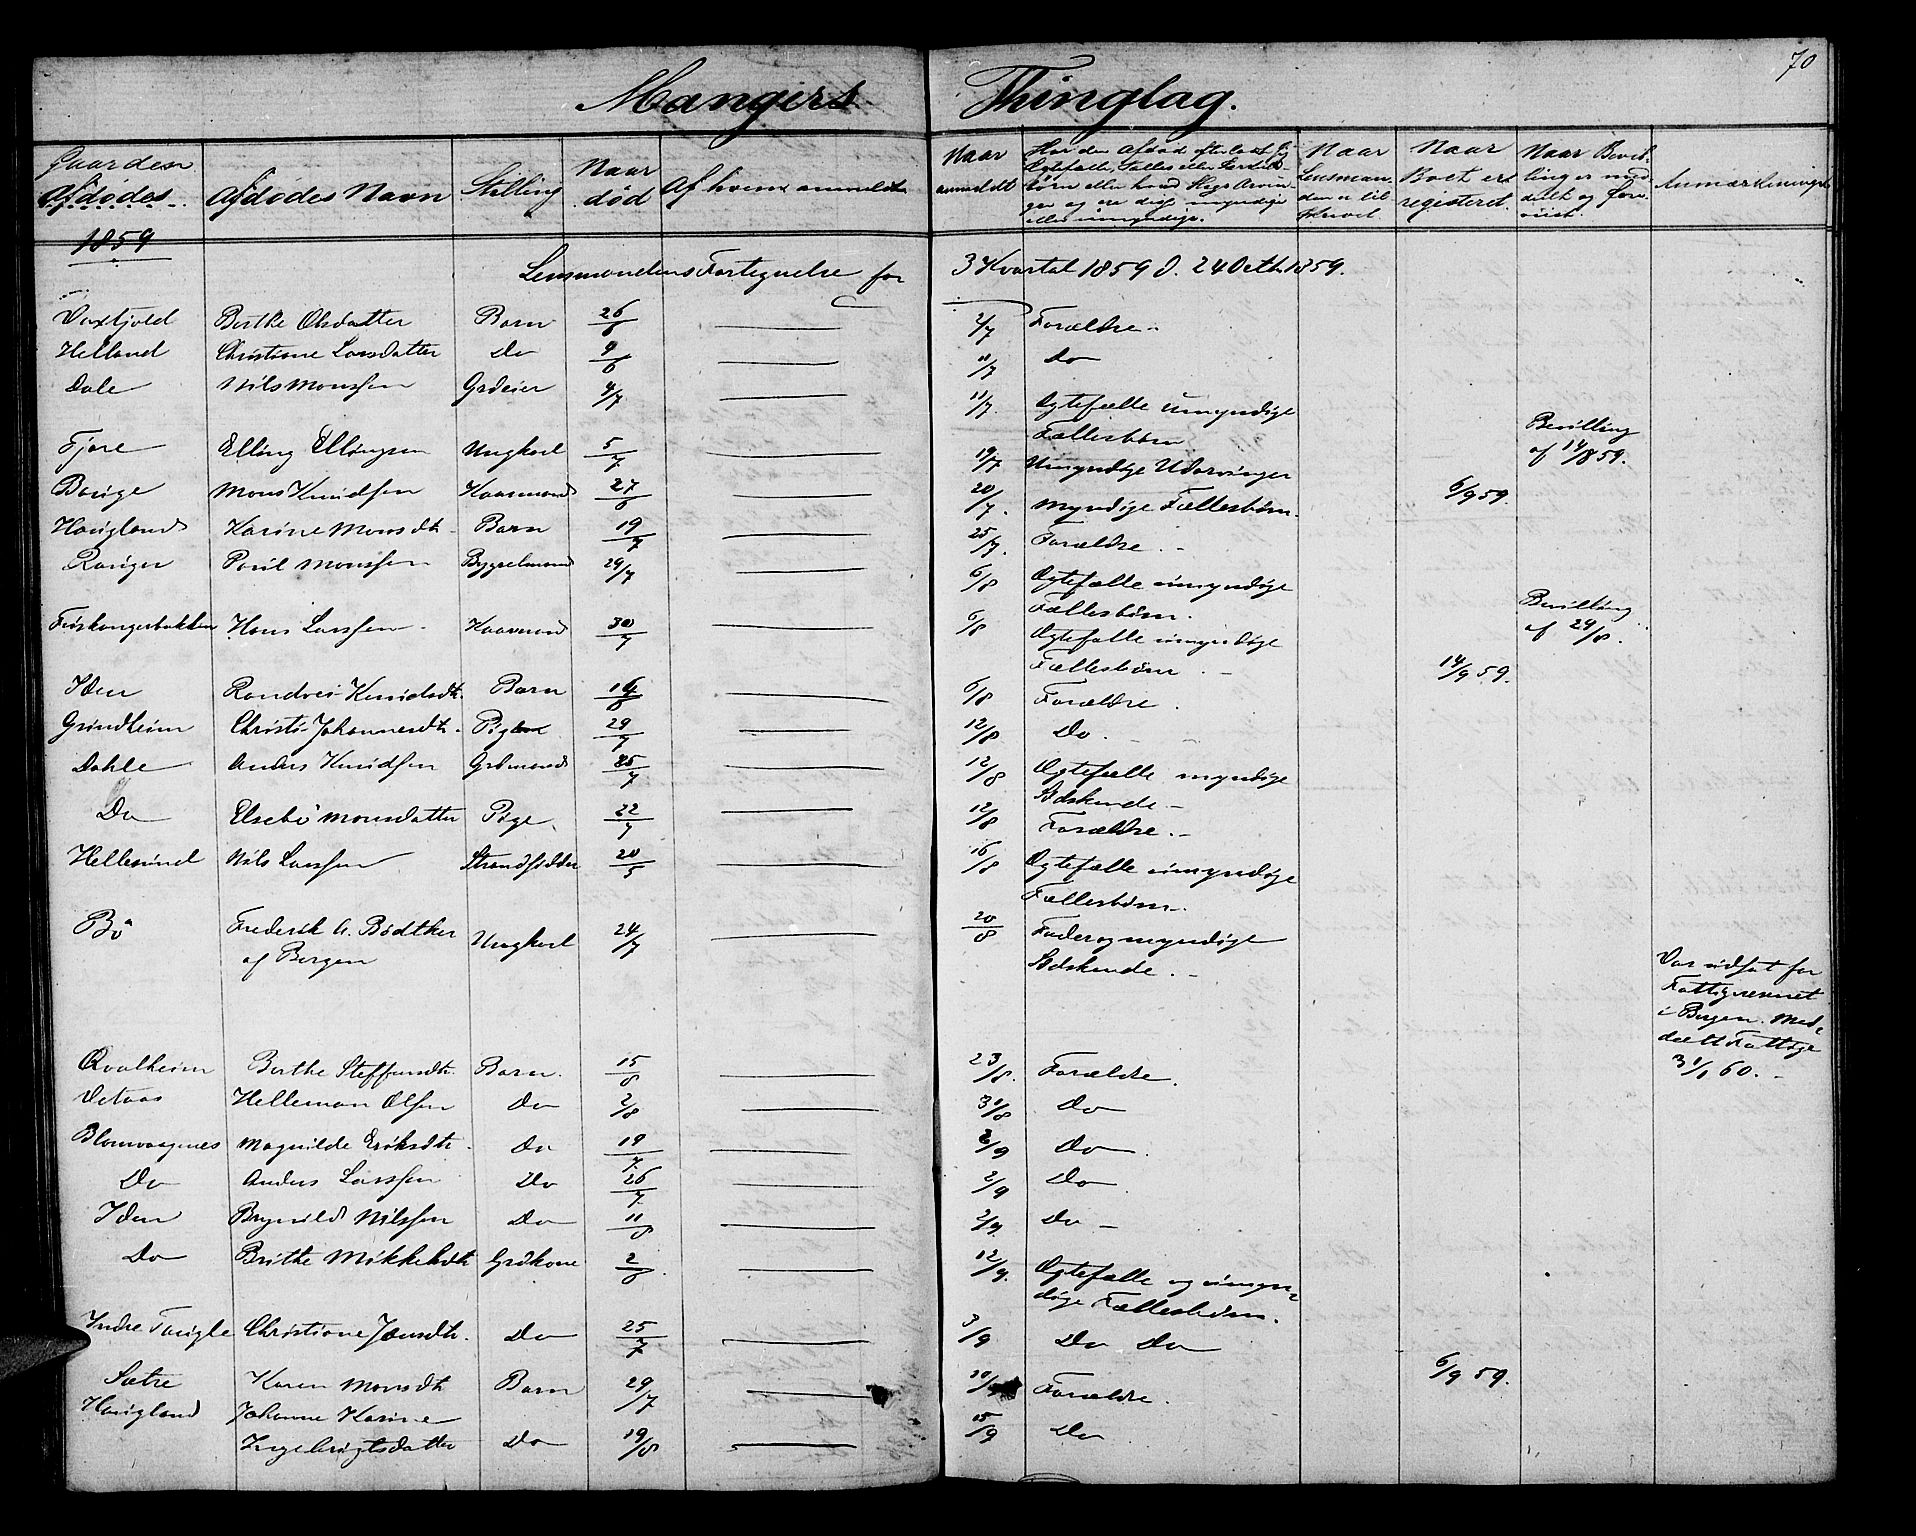 70
Mangers Thinglag.
Gaarden
Afdødes
Afdødes Navn
Stilling
Naar død
Af hvem anmeldt
Naar anmeldt
Har den Afdøde efterladt sig
Naar Lensmanden er tilskrevet
Naar Boet er registeret
Naar Bevillinger meddelt og forevist.
Anmærkninger
1859
Lensmandens Fortegnelse for 3 Kvartal 1859 d. 24 Octb. 1859.
Berthe Olsdatter Barn 26/6 2/7 Forældre
Helland Christiane Larsdatter Do 9/6 11/7 Do
Dale Nils Monssen Grdeier 4/7 11/7 Ægtefælle umyndige
Fællesbørn Bevilling
af 14/8 59.
Fjøre Elling Ellingsen Ungkarl 5/7 19/7 Umyndige Udarvinger
Bauge Mons Knudsen Kaarmand 27/6 20/7 myndige Fællesbørn. 6/9 59.
Hougland Karine Monsdtr. Barn 19/7 25/7 Forældre
Povil Monssen Bygselmand 29/7 6/8 Ægtefælle umyndige
Fællesbørn. Bevilling
af 29/8.
Hans Larssen Kaarmand 30/7 6/8 Ægtefælle umyndige
Fællesbørn 14/9 59.
Iden Randvei Knudsdt. Barn 6/8 Forældre
Grindheim Christi Johannesdtr. Pige 29/7 12/8 Do
Dahle Anders Knudsen Grdmand 25/7 12/8 Ægtefælle myndige
Sødskende
Do Elsebe Monsdatter Pige 22/7 12/8 Forældre
Hellesund Nils Larssen Strandsidder 20/5 16/8 Ægtefælle umyndige
Fællesbørn.
Bø Frederik A. Bødtker
af Bergen Ungkarl 24/7 20/8 Fader og myndige
Sødskende.
Var udsat for
Fattigvæsenet
i Bergen. Med-
deelt Fattige
31/1 60.
Qvalheim Berthe Steffensdt. Barn 15/8 23/8 Forældre.
Vetaas Helleman Olsen Do 2/8 30/8 Do
Blomvaagnes Magnilde Eriksdtr. Do 19/7 2/9 Do
Do Anders Larssen Do 26/7 2/9 Do
Iden Brynild Nilssen Do 11/8 2/9 Do
Do Brithe Mikkelsdtr Grdkone 2/8 12/9 Ægtefælle og umyn-
dige Fællesbørn.
Indre Fauglø Christiane Jensdtr. Do 25/7 3/9 Do Do
6/9 59.
Sætre Karen Monsdt Barn 29/7 Forældre.
Hougland Johanne Karine
Ingebrigtsdatter Do 19/8 15/9 Do